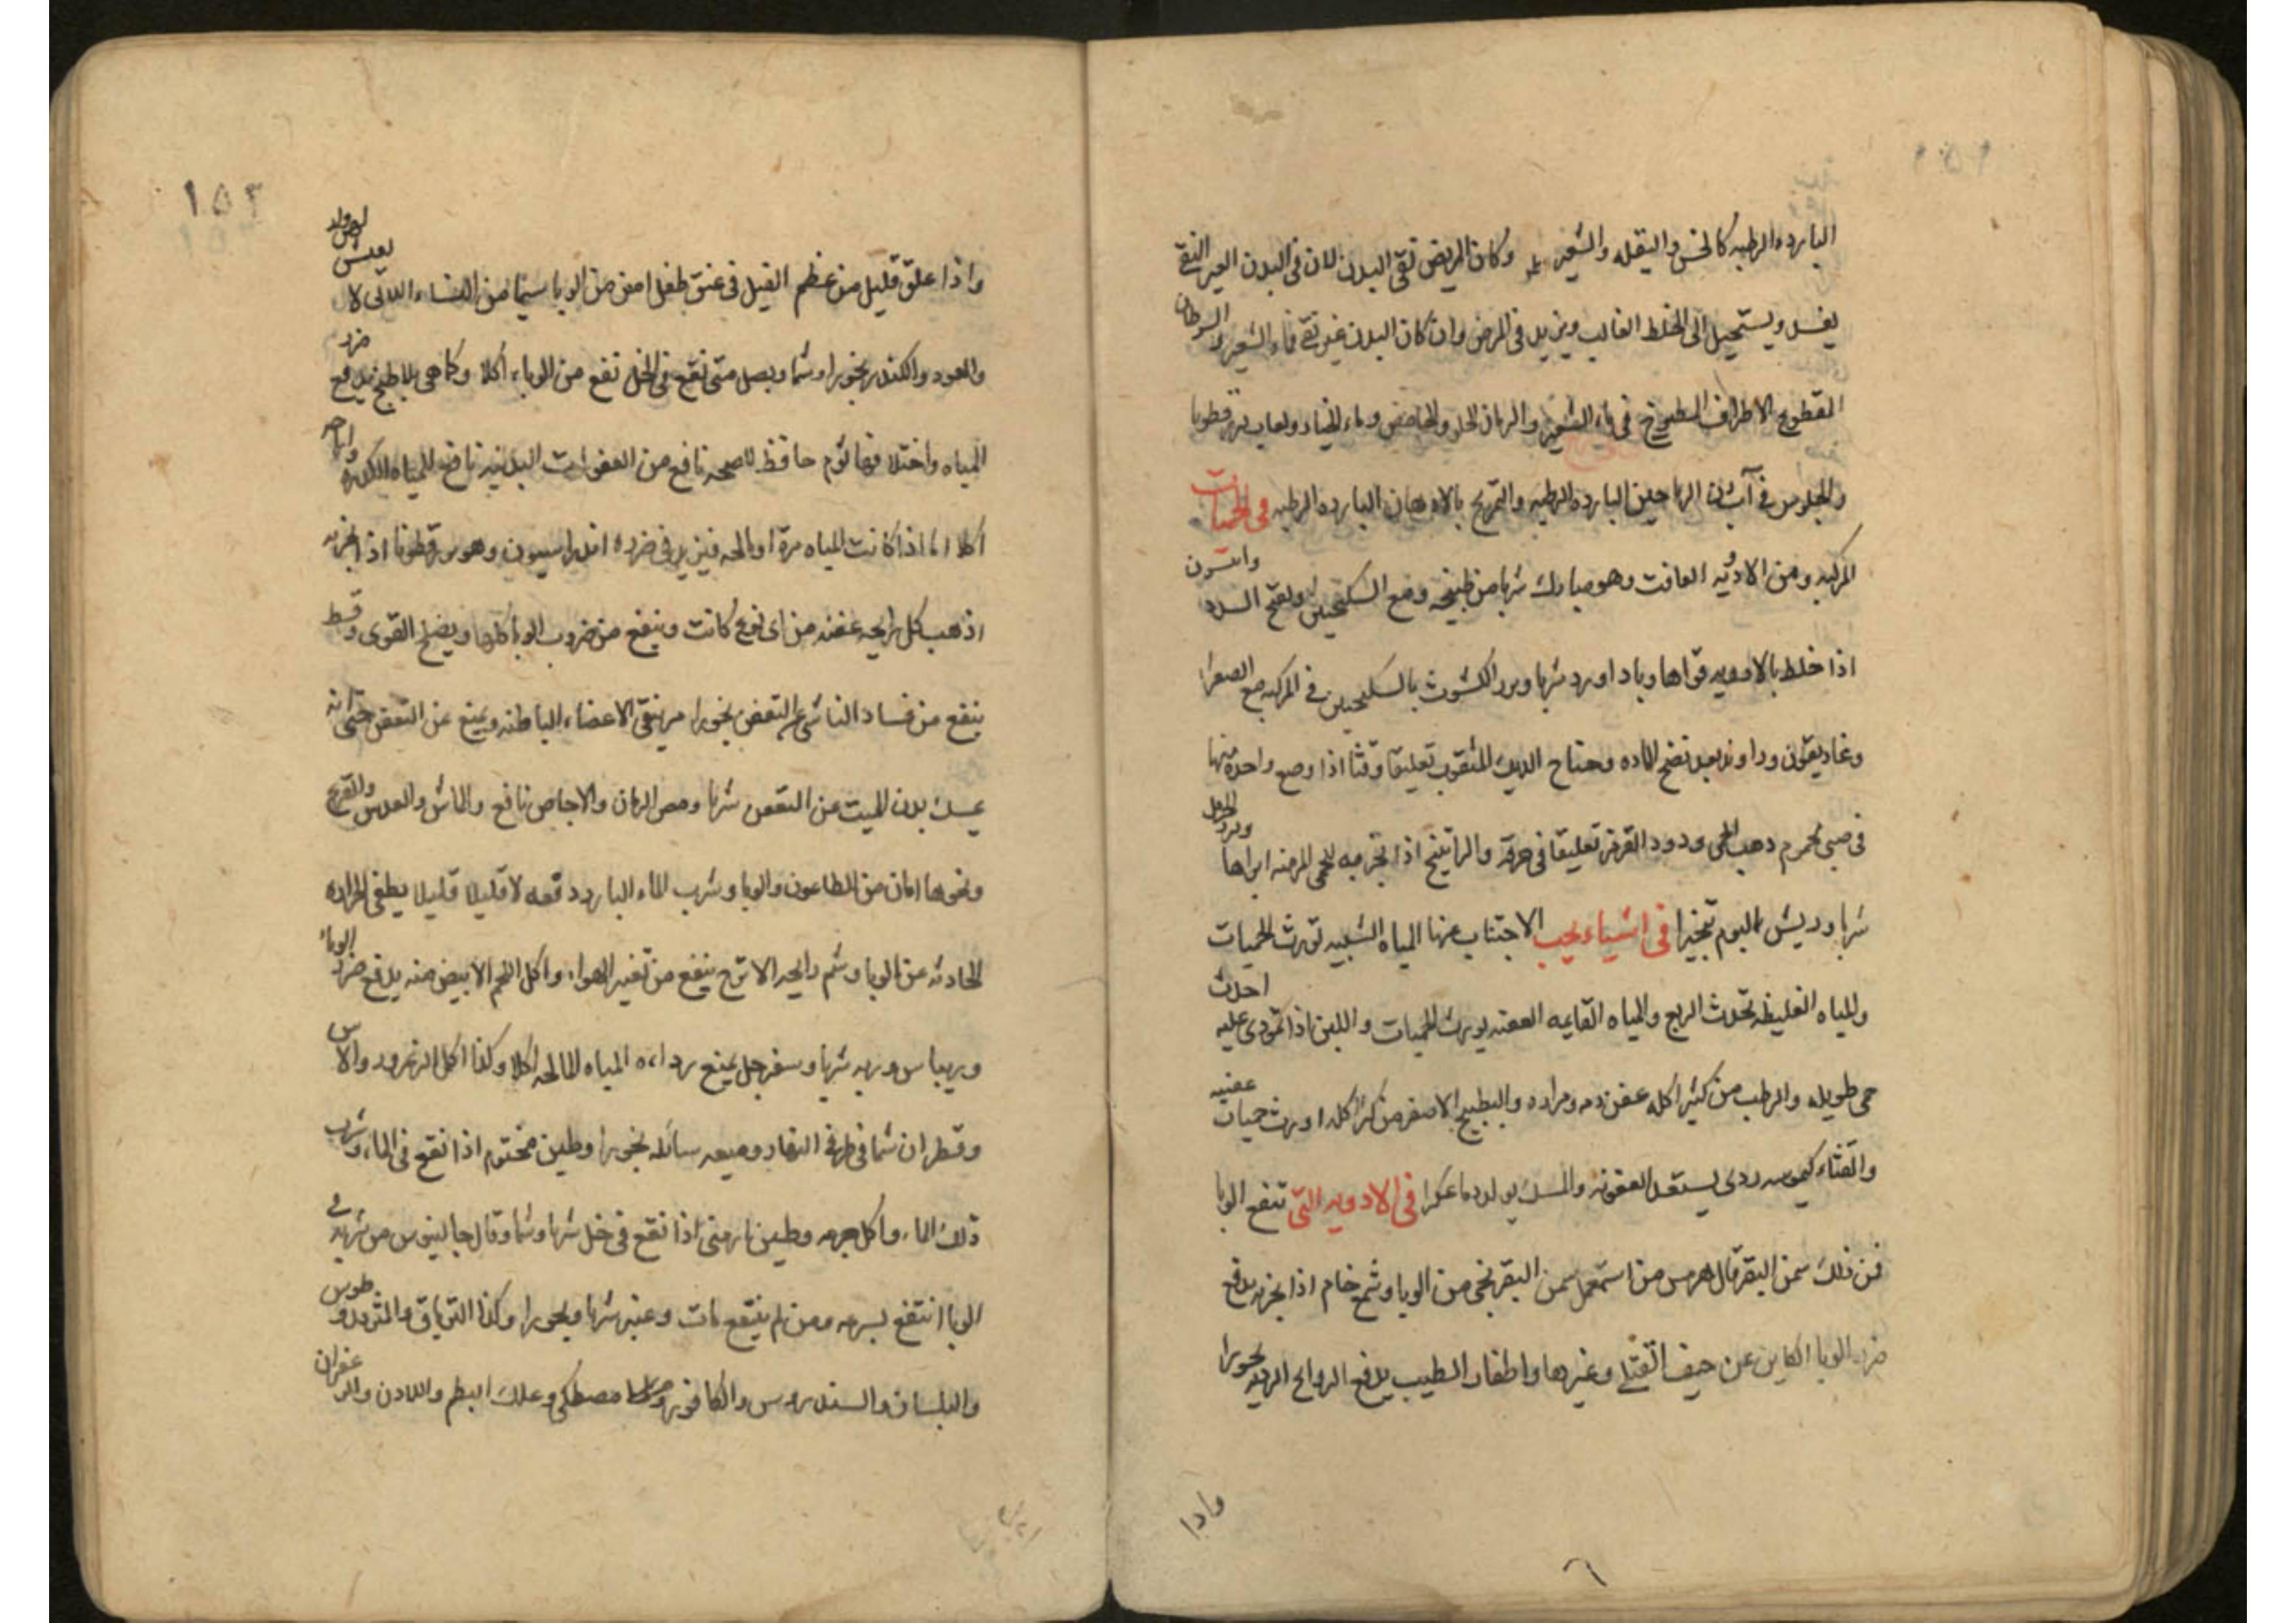 البارده الرطبه كالخس والبقله والشعير وكان المريض نقى البدن لان فى البدن الغير النقى
يفسد ويستحيل الى الخلط الغالب ويزيد فى المرض وان كان البدن غير نقى فماء الشعير لا السرطان
المقطوع الاطراف المطبوخ فى ماء الشعير والرمان الحلو والحامض وماء الخيار ولعاب بزرقطونا
والجلوس فى آبزن الرياحين البارده الرطبه والتمريخ بالادهان البارده الرطبه فى الحميات
المركبه ومن الادويه الغافت وهو مبارك شربا من طبيخه ومع السكنجبين ويفتح السدد
اذا خلط بالادويه قواها وباداورد شربا وبزر الكشوث بالسكنجبين فى المركبه مع الصفرا
وغاريقون وراوند بعد نضج الماده وجناح الديك المثقوب تعليقا وقثا اذا وضع واحدة منها
فى صبى محموم دهب الحمى ودود القرمز تعليقا فى خرقه والراتينج اذا بخر به للحمى المزمنه ابراها
شربا وريش البوم تبخيرا فى اشياء يجب الاجتناب عنها المياه الشبيه تورث الحميات
والمياه الغليظه تحدث الربع والمياه القايمه العفنه يورث الحميات واللبن اذا تمودى عليه احدث
حمى طويله والرطب من كثير اكله عفن دمه ومراره والبطيخ الاصفر من كثر اكله اورث حميات عفنيه
والقثاء كيموسه ردى يستعد العفونه والسمك يولد دما عكرا فى الادويه التى تنفع الوبا
فمن ذلك سمن البقر قال هرمس من استعمل سمن البقر نجى من الوبا وشمع خام اذا بخر به يدفع
ضرر الوبا الكاين عن جيف القتلى وغيرها واظفار الطيب يدفع الروايح الرديه بخورا
واذا
١٥٣
واذا علق قليل من عظم الفيل فى عنق طفل امن من الوبا سيما من النساء اللاتى لا يعيش لهن ولد
والعود والكندر بخورا وشما وبصل متى نقع فى الخل نفع من الوباء اكلا وكما هى بلا طبخ يدفع ضرر
المياه واختلافها ثوم حافظ للصحه نافع من العفونات البدنيه نافع للمياه الكدره
اكلا الا اذا كانت المياه مرة او مالحه فيزيد فى ضرره اندراسيون وهو برقطونا اذا بخر به
اذهب كل رايحه عفنه من اى نوع كانت وينفع من ضروب الوبا اكلا ويصلح القوى وقسط
ينفع من فساد الناشى عن التعفن بخورا مر ينقى الاعضاء الباطنه ويمنع عن التعفن حتى انه
يمسك بدن الميت عن التعفن شربا ومص الرمان والاجاص نافع والماش والعدس والقرع
ونحوها امان من الطاعون والوبا وشرب الماء البارد دفعه لا قليلا قليلا يطفى الحراره
الحادثه عن الوبا وشم رايحه الاترج ينفع من تغير الهواء واكل اللحم الابيض منه يدفع ضرر الوباء
وريباس وربه شربا وسفرجل يمنع رداءه المياه المالحه اكلا وكذا اكل الزعرور والاس
وقطران شما فى طرفى النهار وميعه سائله بخورا وطين مختوم اذا نقع فى الماء وشرب
ذلك الماء واكل جرمه وطين ارمنى اذا نقع فى خل شربا وشما وقال جالينوس من شربه فى
الوبا انتفع بسرعه ومن لم ينتفع مات وعنبر شربا وبخورا وكذا الترياق والمثروديطوس
والبلسان والسندروس والكافور مصطكى وعلك البطم واللادن والزعفران